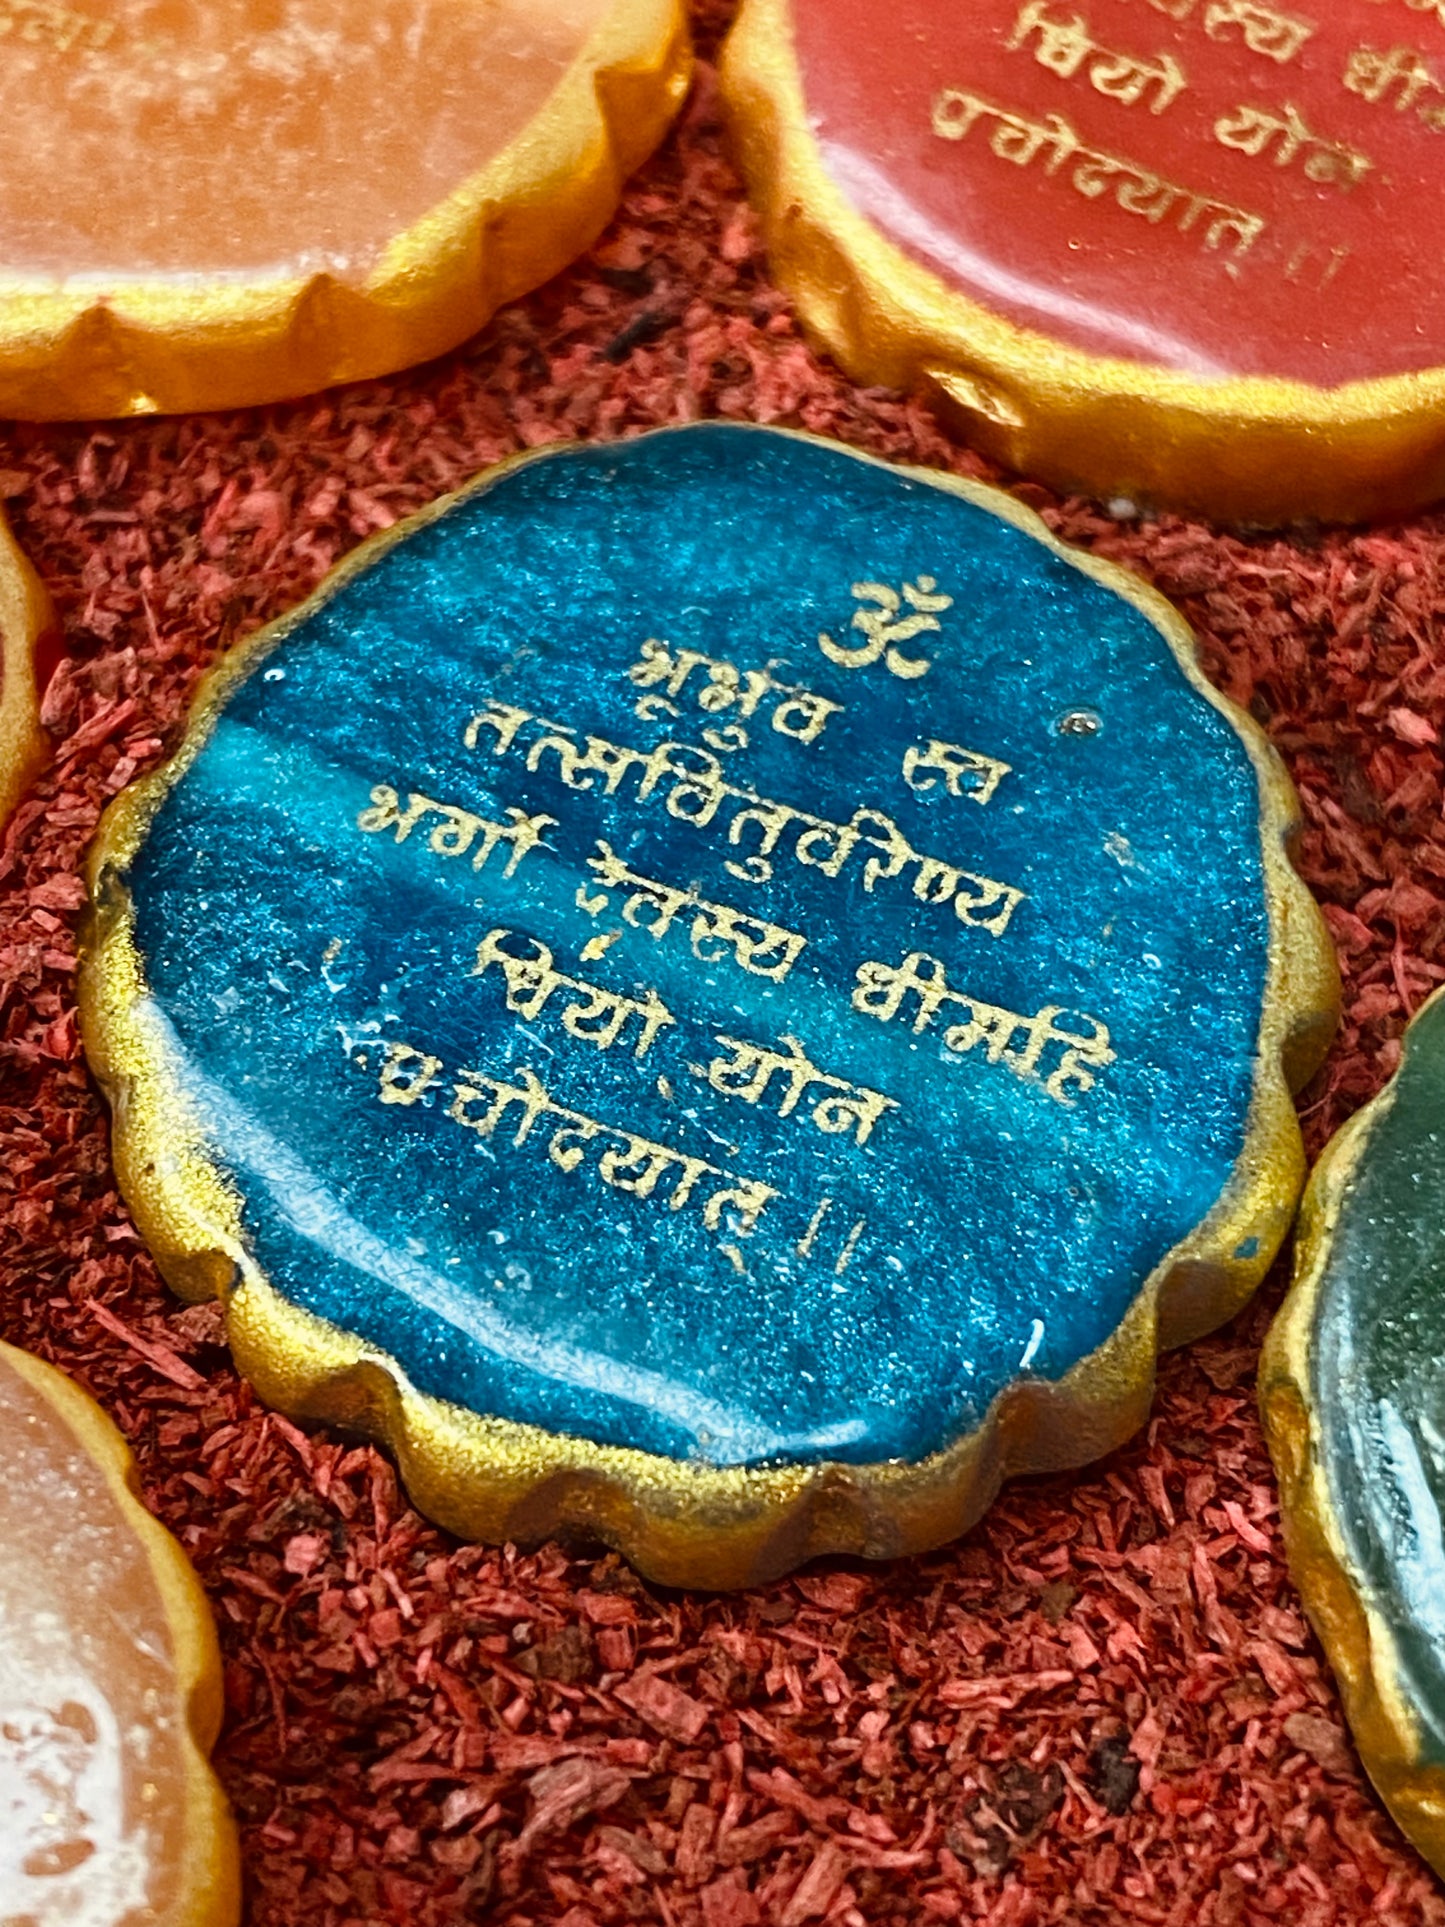 धियो योन
प्रचोदयात् ।।
ॐ
भूर्भुव स्व
तत्सवितुर्वरेण्य
भर्गो देवस्य धीमहि
धियो योन
प्रचोदयात् ।।